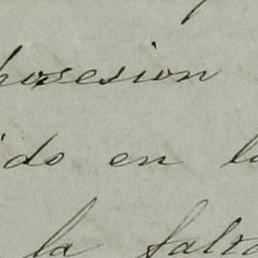 posesion
ido en la
la falta